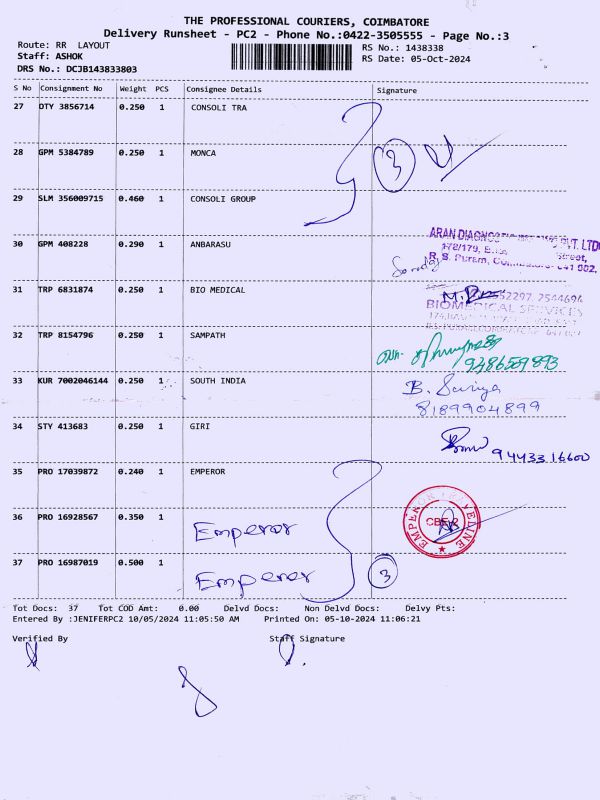 THE PROFESSIONAL COURIERS, COIMBATORE
Delivery Runsheet - PC2 - Phone No.:0422-3505555 - Page No.:3
Route: RR LAYOUT
Staff: ASHOK
DRS No.: DCJB143833803
RS No.: 1438338
RS Date: 05-Oct-2024
S No Consignment No Weight PCS Consignee Details Signature
27 DTY 3856714 0.250 1 CONSOLI TRA
28 GPM 5384789 0.250 1 MONCA
3
29 SLM 356009715 0.460 1 CONSOLI GROUP
30 GPM 408228 0.290 1 ANBARASU
ARAN DIAGNOSTIC PVT. LTD
172/179, Street,
R. S. Puram, Coimbatore- 641 002.
31 TRP 6831874 0.250 1 BIO MEDICAL
2297, 2544694
BIOMEDICAL SERVICES
32 TRP 8154796 0.250 1 SAMPATH
9486589893
33 KUR 7002046144 0.250 1 SOUTH INDIA
B. Suriya
8189904899
34 STY 413683 0.250 1 GIRI
94433 16600
35 PRO 17039872 0.240 1 EMPEROR
36 PRO 16928567 0.350 1 Emperor
EMPEROR TRAVELINE
CBE-2
37 PRO 16987019 0.500 1 Emperor
3
Tot Docs: 37 Tot COD Amt: 0.00 Delvd Docs: Non Delvd Docs: Delvy Pts:
Entered By :JENIFERPC2 10/05/2024 11:05:50 AM Printed On: 05-10-2024 11:06:21
Verified By Staff Signature